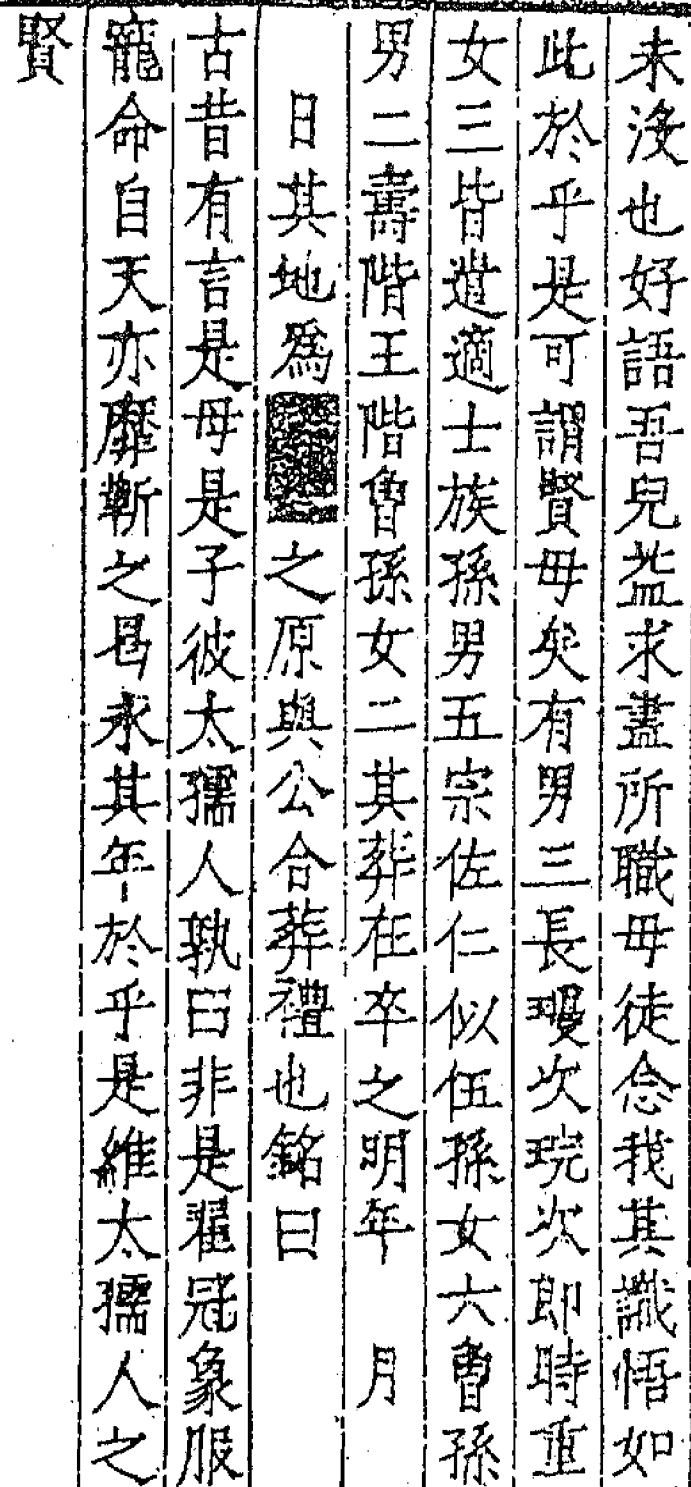 未沒也好語吾兒盖求盡所職毋徒念我其識悟如
此於乎是可謂賢母矣有男三長璎次珖次即時重
女三皆遣適士族孫男五宗佐仁似伍孫女六曾孫
男二壽階王階曾孫女二其葬在卒之明年 月
日其地為 之原與公合葬禮也銘曰
古昔有言是母是子彼太孺人孰曰非是翟冠象服
寵命自天亦靡靳之曷永其年於乎是維太孺人之
賢